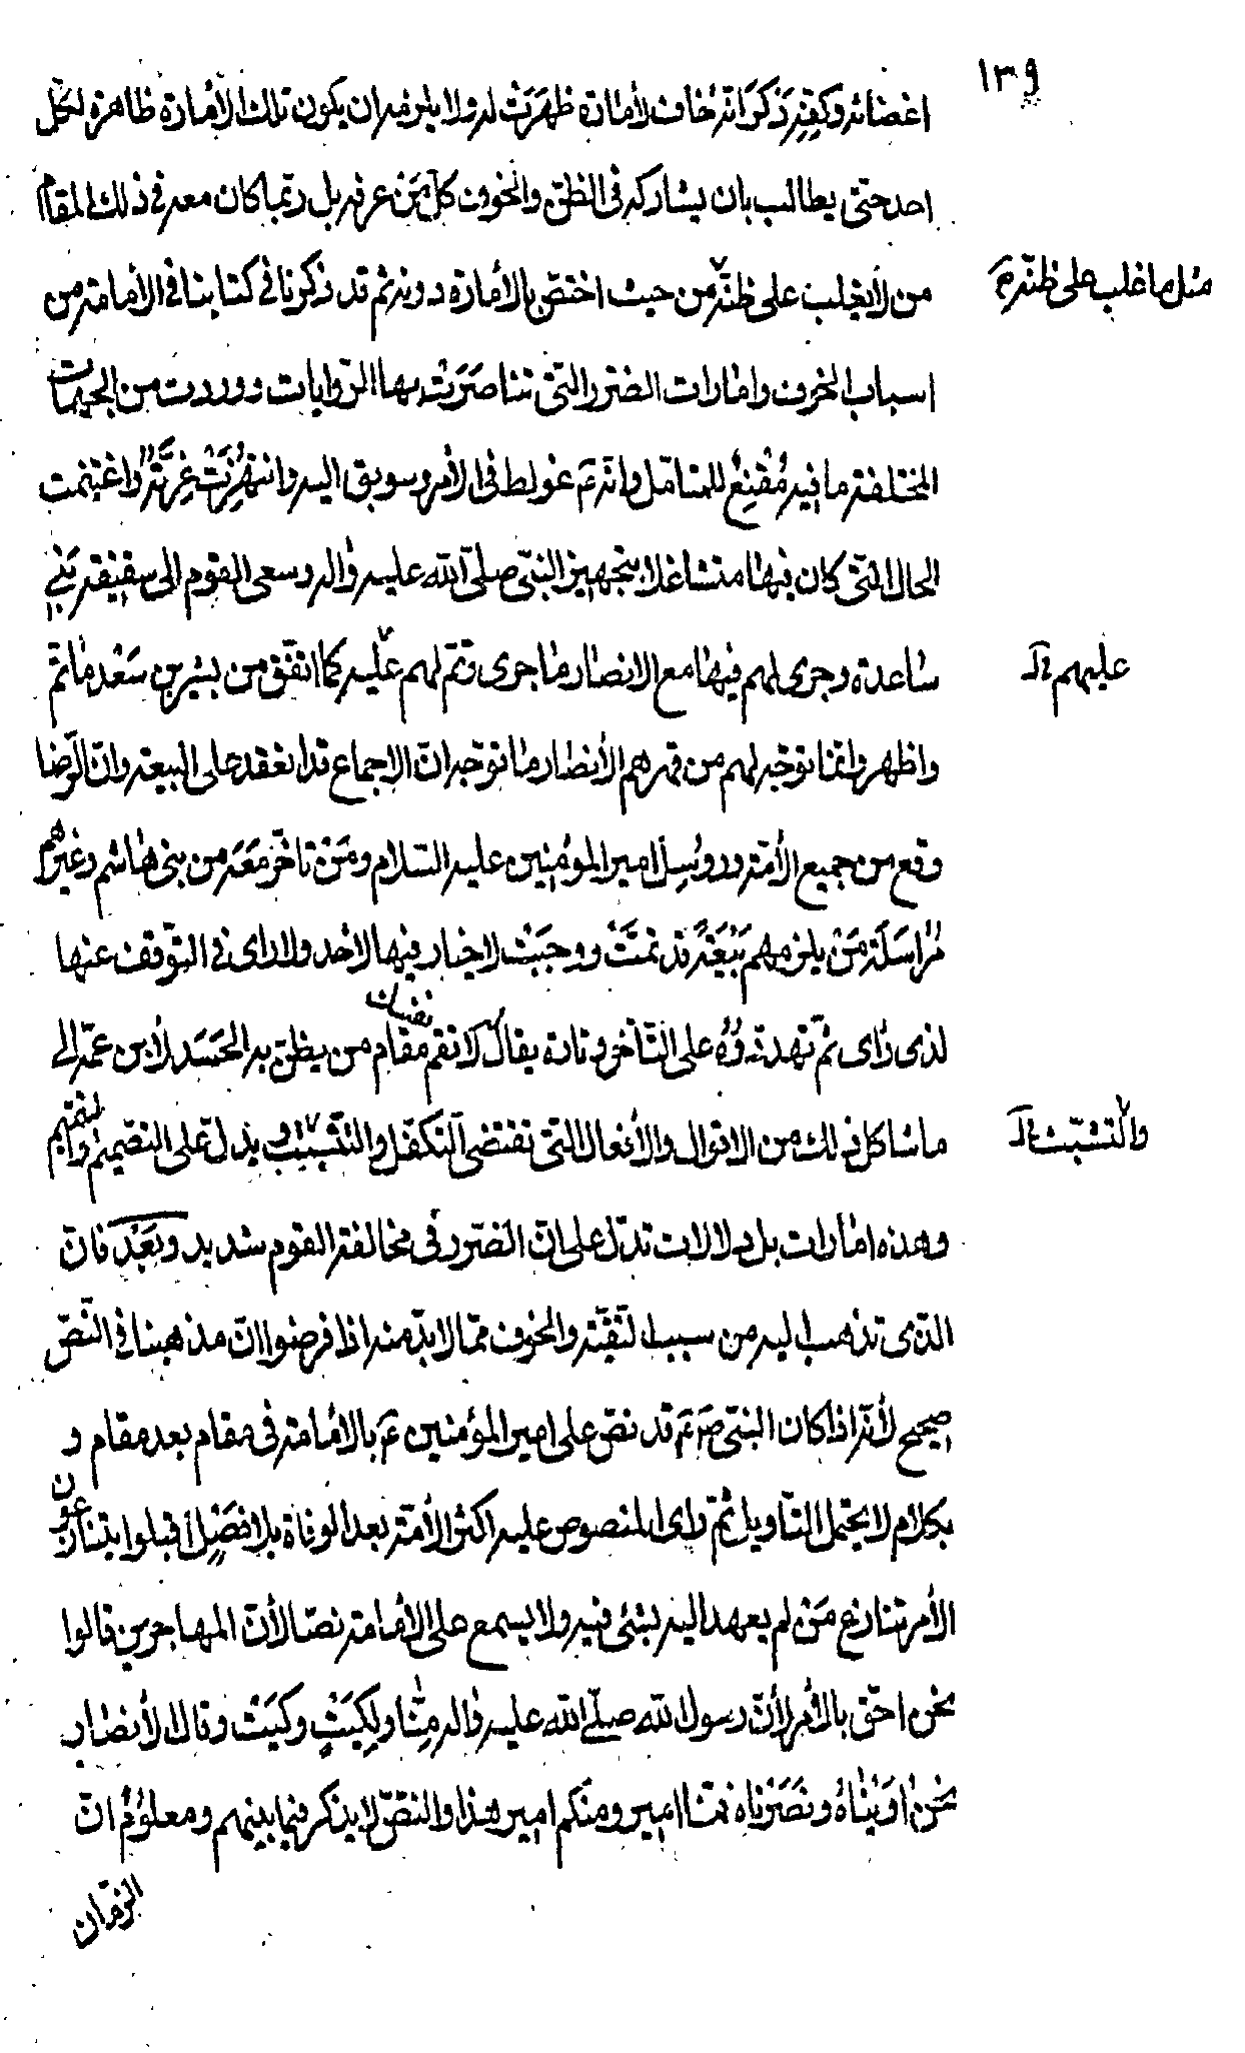 ١٣٩
اغضائه وكفه ذكر انه خاف لأمارة ظهرت له ولا يلزمه ان يكون تلك الأمارة ظاهرة لكل
احد حتى يطالب بان يشاركه في الظن والخوف كل من عرفه بل ربما كان معه في ذلك المقام
من لا يغلب على ظنه من حيث اختص بالأمارة دونه ثم قد ذكرنا في كتابنا في الأمامة من
مثل ما غلب على ظنه
اسباب الخوف وامارات الضرر التي تناصرت بها الروايات ووردت من الجهات
المختلفة ما فيه مُقْنِعٌ للمتامل وانه ع غولط في الأمر وسوبق اليه وانتُهِزَتْ غِرّتُه واغتنمت
الحال التي كان فيها متشاغلا بتجهيز النبي صلى الله عليه واله وسعى القوم الى سقيفة بني
ساعدة وجرى لهم فيها مع الانصار ما جرى وتم لهم عليه كما اتفق من بشير بن سَعْد ما تم
عليهم
واظهر وانما توجه لهم من قهرهم الأنصار ما توجه ان الاجماع قد انعقد على البيعة وان الرضا
وقع من جميع الأمة وروسل امير المؤمنين عليه السلام ومَنْ تاخر معه من بني هاشم وغيرهم
مُراسَلَة مَنْ يلزمهم بَيْعَةٌ قد تمتْ ووجبَتْ لا خيار فيها لأحد ولا راى في التوقف عنها
لذى راى ثم تهددوه على التأخر وتارة يقال لا تقم مقام من يظن به الحَسَد لأبن عمه الى
ما شاكل ذلك من الاقوال والأفعال التي تقتضى التكفل والتثبيت ويدل على التصميم
والتشبث
وهذه امارات بل دلالات تدل على ان الضرر في مخالفة القوم شديد وبَعْد فان
الذي تذهب اليه من سبب التقية والخوف مما لا بد منه اذا فرضوا ان مذهبنا في النص
صحيح لأنه اذا كان النبي قد نص على امير المؤمنين ع بالأمامة في مقام بعد مقام و
بكلام لا يحتمل التاويل ثم راى المنصوص عليه اكثر الأمة بعد الوفاة بلا فَصْل اقبلوا يتنازعون
الأمر تنازع مَنْ لم يعهد اليه بشئ فيه ولا يسمع على الأمامة نصا لأن المهاجرين قالوا
نحن احق بالأمر لأن رسول الله صلى الله عليه واله مِنّا ولكَيْتٍ وكَيْت وقال الأنصار
نحن اويناه ونَصَرناه فمنا امير ومنكم امير هذا والنص لا يذكر فيما بينهم ومعلوم ان
الزمان